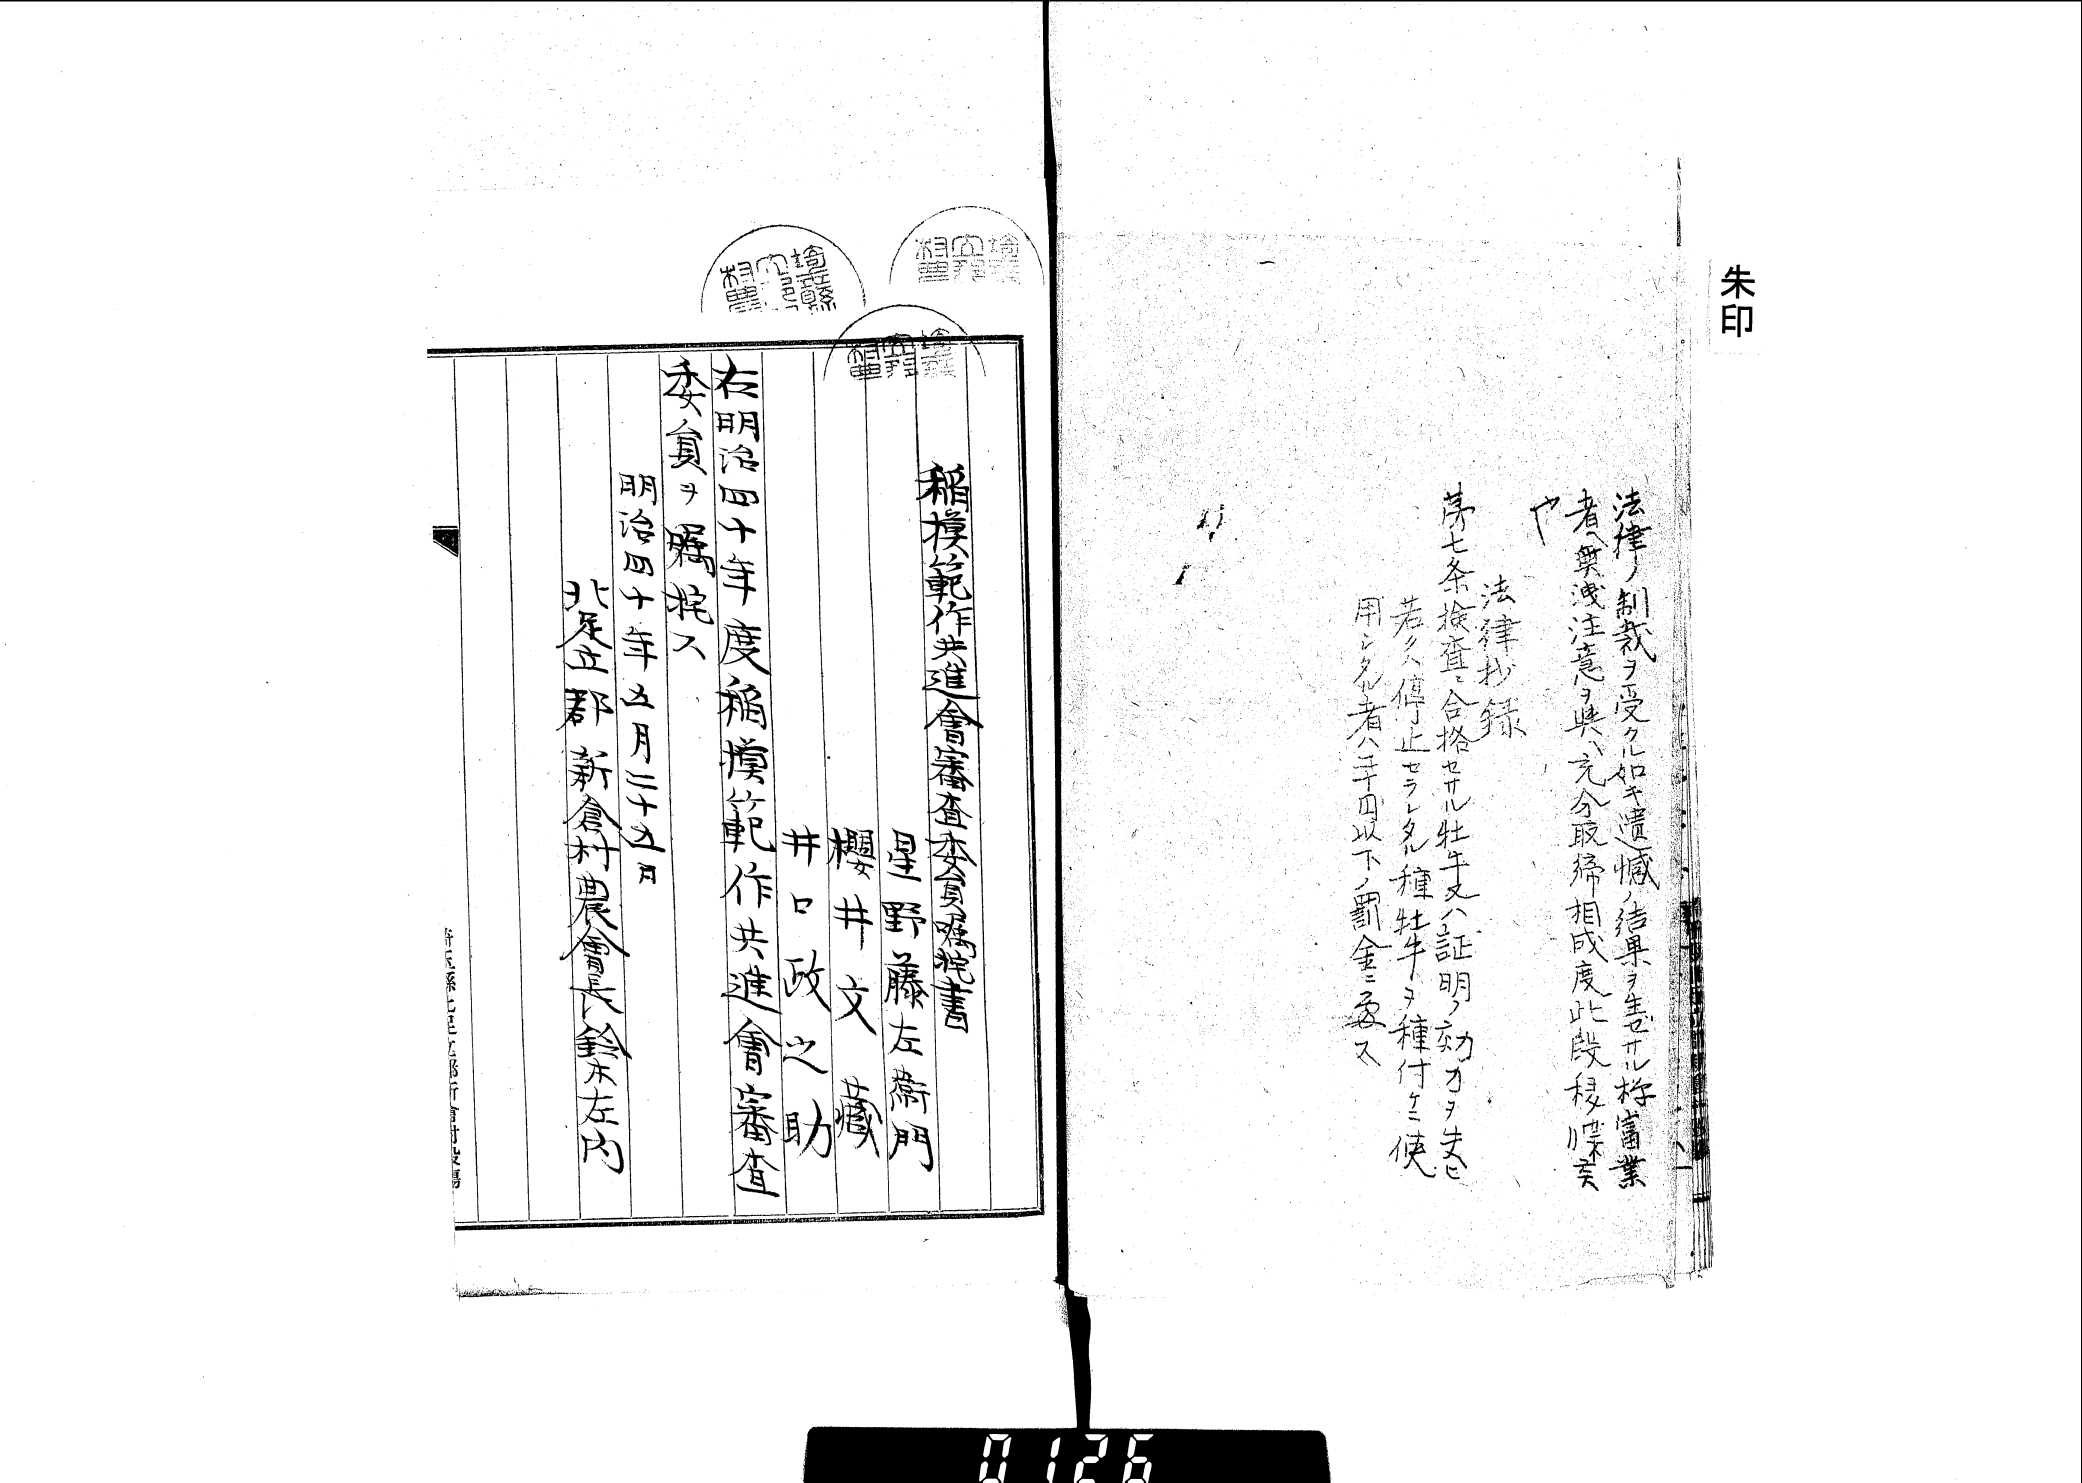 朱印
法律ノ制裁ヲ受クル如キ遺憾ノ結果ヲ生ゼサル様當業
者ヘ無洩注意ヲ與ヘ充分取締相成度此段移牒候
也
法律抄録
第七条検査ニ合格セサル牡牛又ハ証明ノ効力ヲ失ヒ
若クハ停止セラレタル種牡牛ヲ種付ケニ使
用シタル者ハ五十円以下ノ罰金ニ処ス
稲模範作共進會審査委員嘱託書
星野藤左衛門
櫻井文藏
井口政之助
右明治四十年度稲模範作共進會審査
委員ヲ嘱託ス
明治四十年五月二十五日
北足立郡新倉村農會長鈴木左内
埼玉縣北足立郡新倉村役場
0126